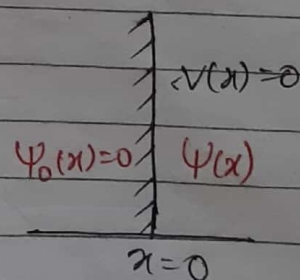 V(x)=0
ψ₀(x)=0 ψ(x)
x=0